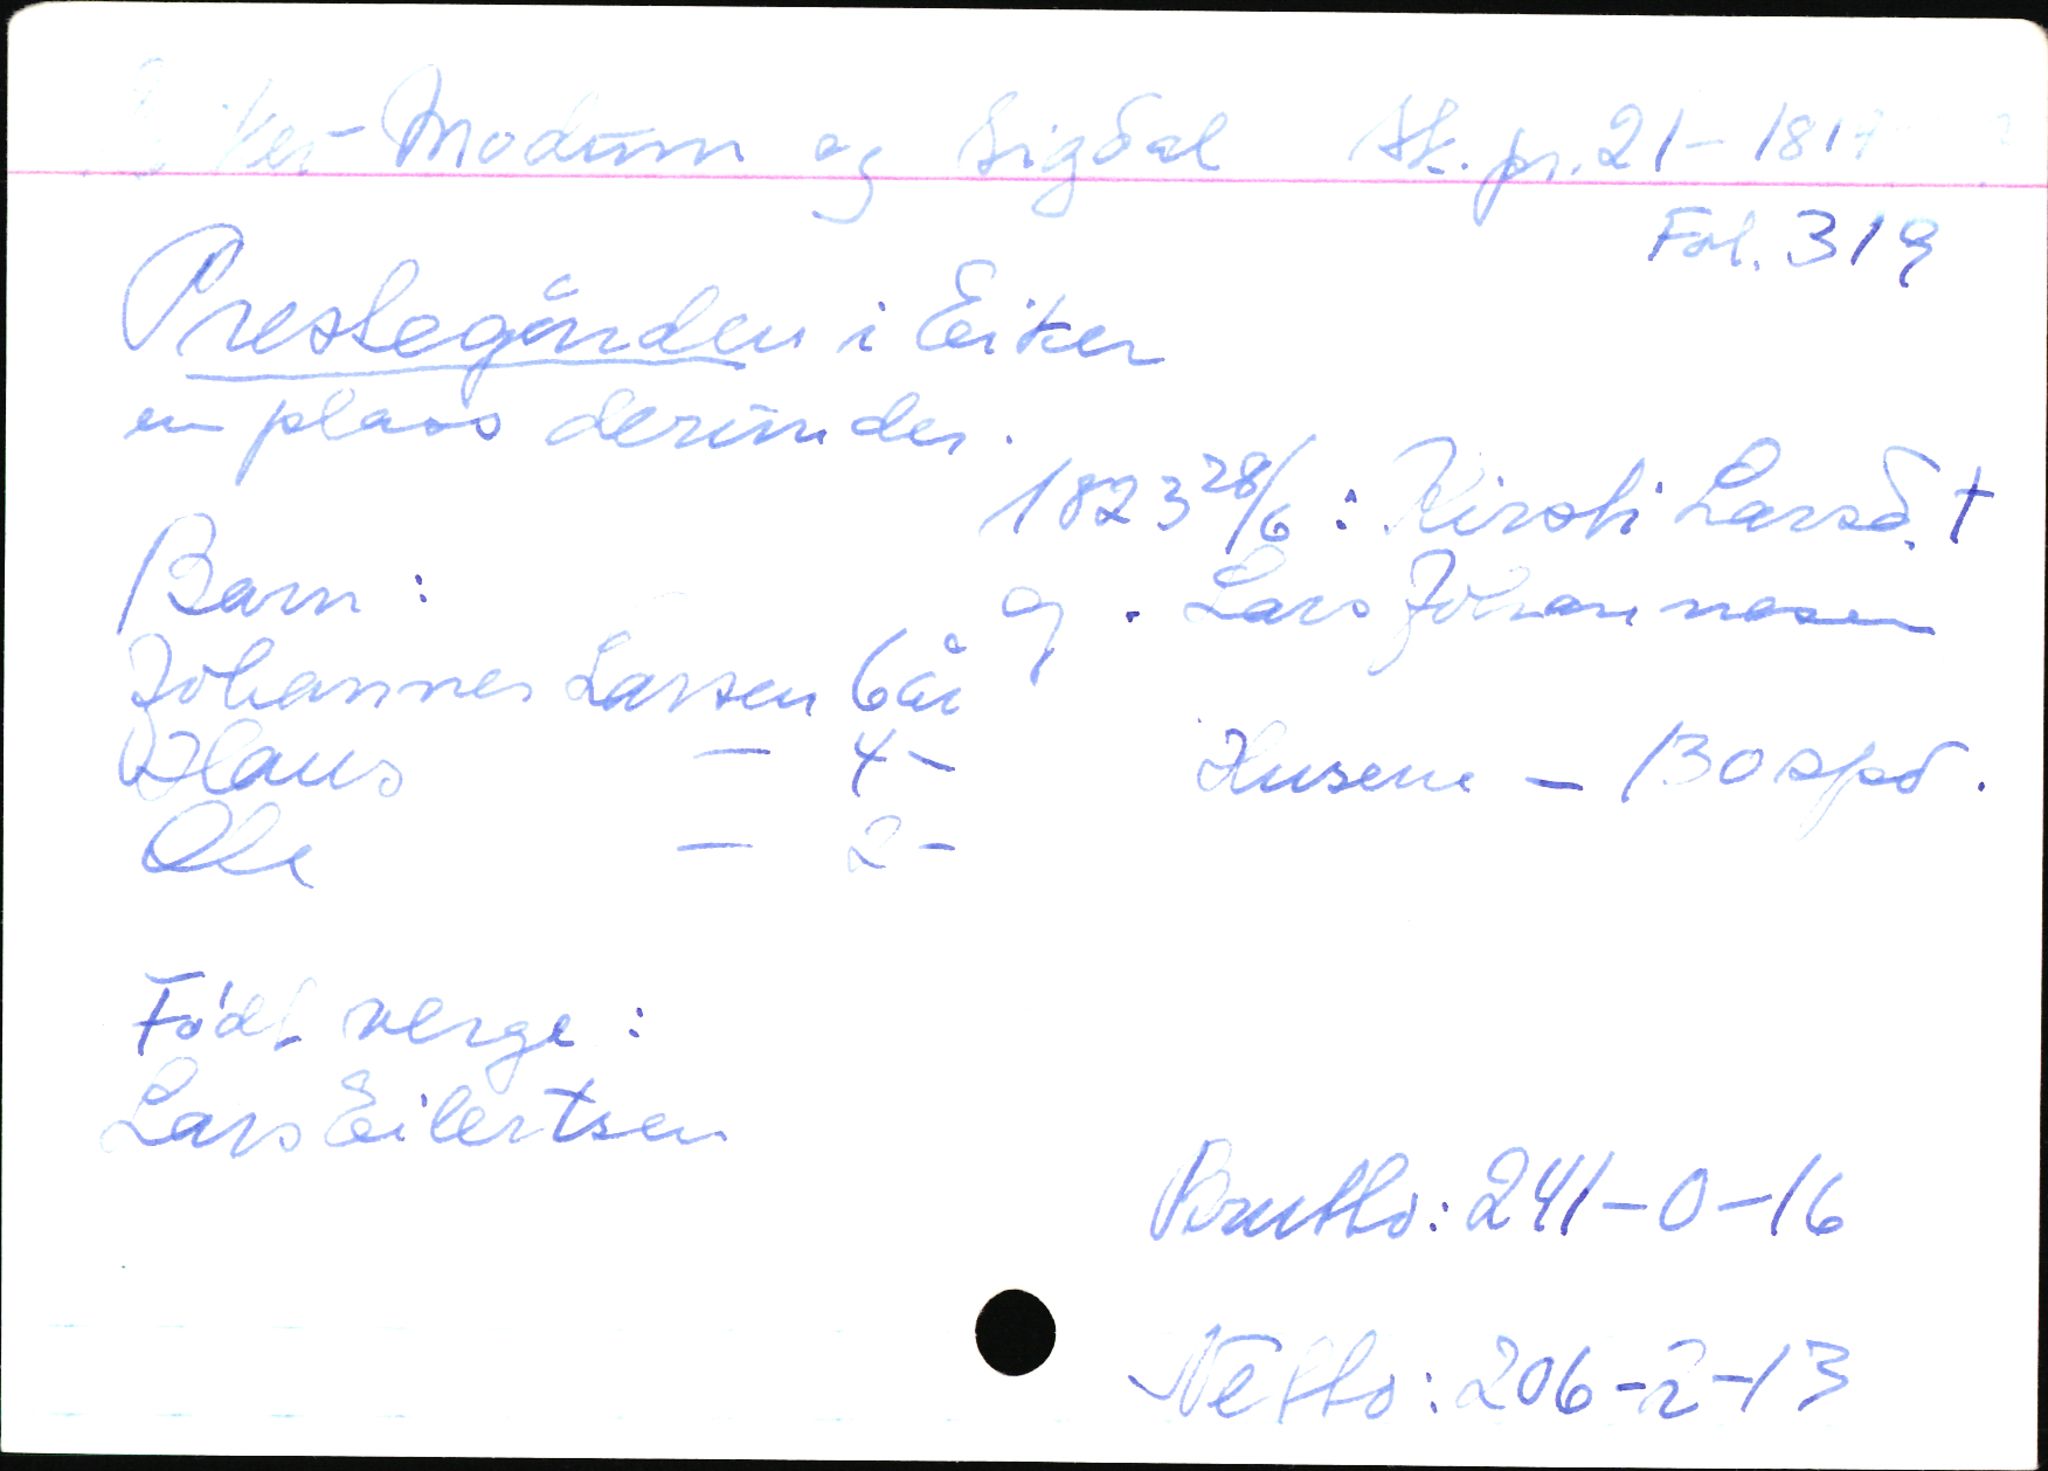 Eiker-Modum og Sigdal Sk. pr. 21-1817
Fol. 319
Prestegården i Eiker
en plass derunder.
1823 28/6: Kirsti Larsd. †
g. Lars Johannesen
Barn:
Johannes Larsen 6 år
Klaus — 4-
Ole — 2-
Husene - 130 spd.
Født verge:
Lars Eilertsen
Brutto: 241-0-16
Netto: 206-2-13